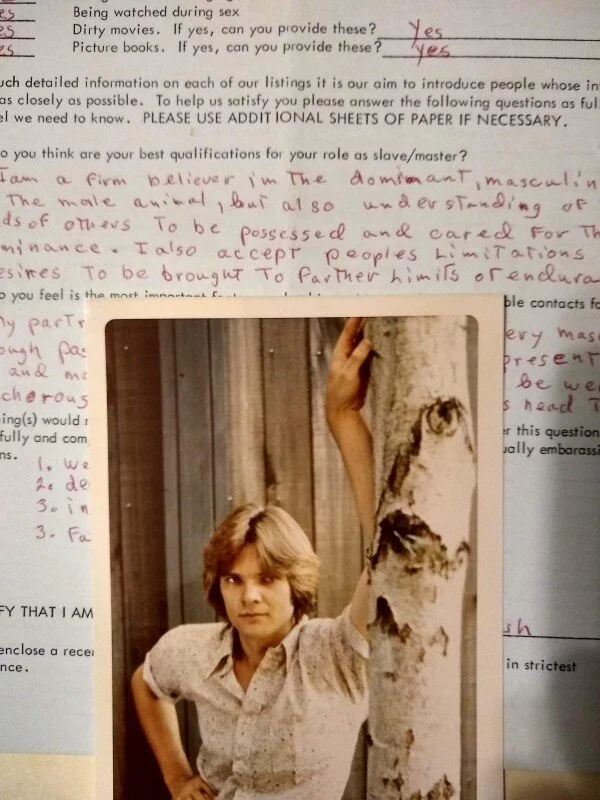 es Being watched during sex
es Dirty movies. If yes, can you provide these? Yes
es Picture books. If yes, can you provide these? yes
uch detailed information on each of our listings it is our aim to introduce people whose in
as closely as possible. To help us satisfy you please answer the following questions as ful
el we need to know. PLEASE USE ADDITIONAL SHEETS OF PAPER IF NECESSARY.
o you think are your best qualifications for your role as slave/master?
I am a firm believer in The dominant, masculin
The male animal, but also understanding of
ds of others To be possessed and cared For Th
minance. I also accept peoples Limitations
esires To be brought To Farther Limits of endura
o you feel is the most important ble contacts fo
My partn ery mas
ough pas present
and me be we
thoroug s head T
ing(s) would r er this question
fully and com ually embarassi
ns.
1. we
2. de
3. in
3. Fa
FY THAT I AM sh
enclose a recen in strictest
nce.